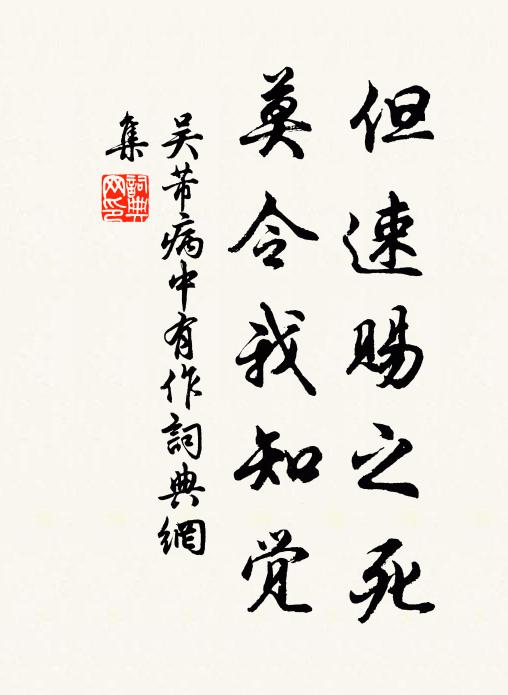 但速賜之死
莫令我知觉
吴芾病中有作詞典網
集
詞典
网印